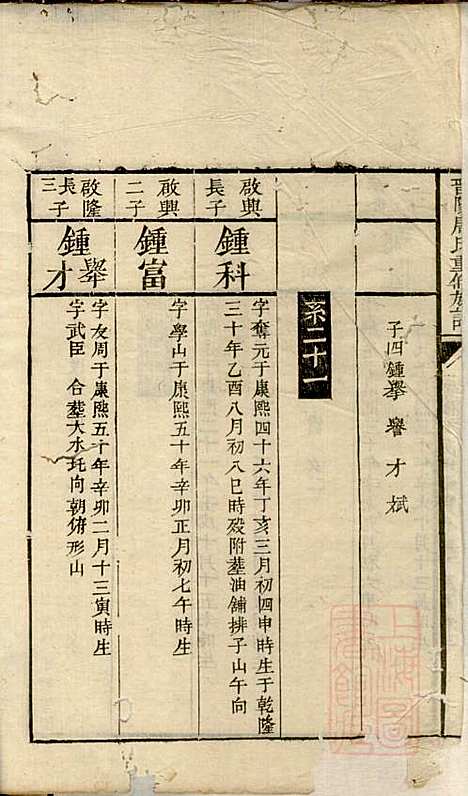 子四鍾擧 譽 才 斌
系二十一
啟興長子
鍾科
字奪元于康熙四十六年丁亥三月初四申時生于乾隆
三十年乙酉八月初八巳時殁附塟油鋪排子山午向
啟興二子
鍾富
字學山于康熙五十年辛卯正月初七午時生
啟隆長子三
鍾擧才
字友周于康熙五十年辛卯二月十三寅時生
字武臣 合塟大水圫向朝俯形山